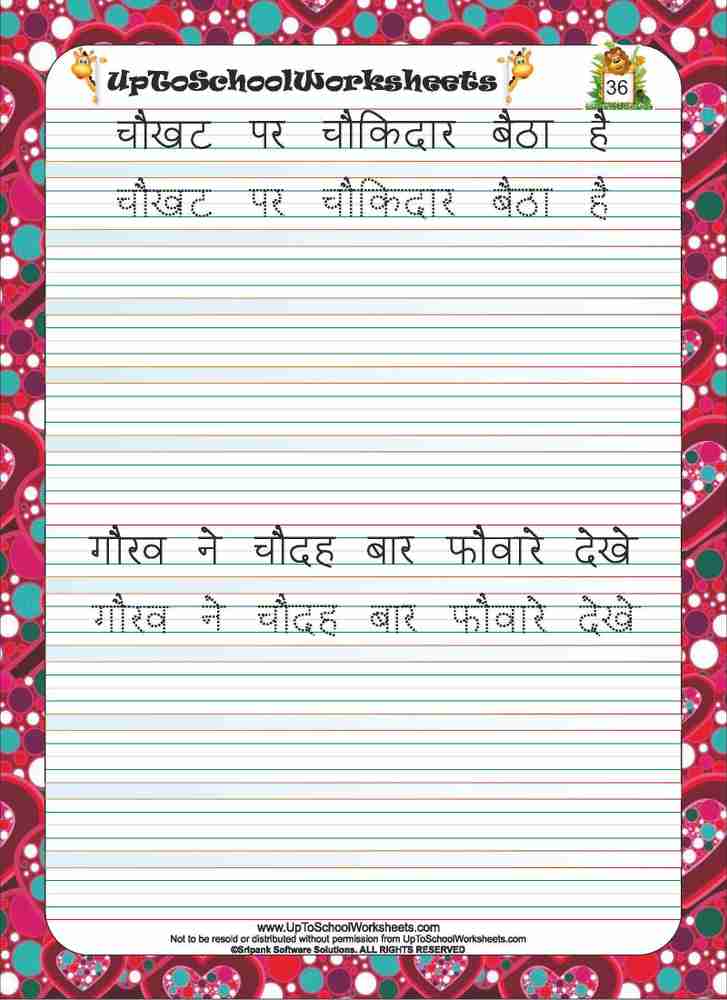 UpToSchoolWorksheets
36
चौखट पर चौकिदार बैठा है
चौखट पर चौकिदार बैठा है
गौरव ने चौदह बार फौवारे देखे
गौरव ने चौदह बार फौवारे देखे
www.UpToSchoolWorksheets.com
Not to be resold or distributed without permission from UpToSchoolWorksheets.com
©Sripank Software Solutions. ALL RIGHTS RESERVED